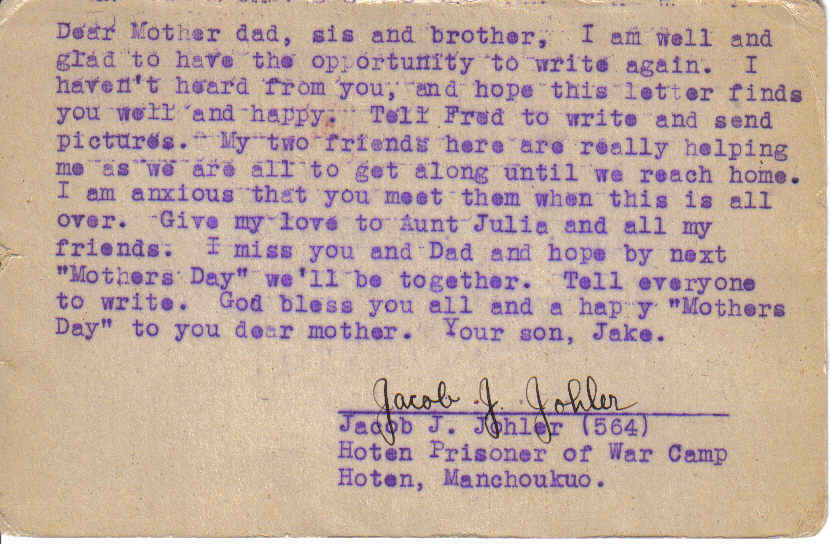 Dear Mother dad, sis and brother, I am well and
glad to have the opportunity to write again. I
haven't heard from you, and hope this letter finds
you well and happy. Tell Fred to write and send
pictures. My two friends here are really helping
me as we are all to get along until we reach home.
I am anxious that you meet them when this is all
over. Give my love to Aunt Julia and all my
friends. I miss you and Dad and hope by next
"Mothers Day" we'll be together. Tell everyone
to write. God bless you all and a hap y "Mothers
Day" to you dear mother. Your son, Jake.
Jacob J. Johler
Jacob J. Johler (564)
Hoten Prisoner of War Camp
Hoten, Manchoukuo.